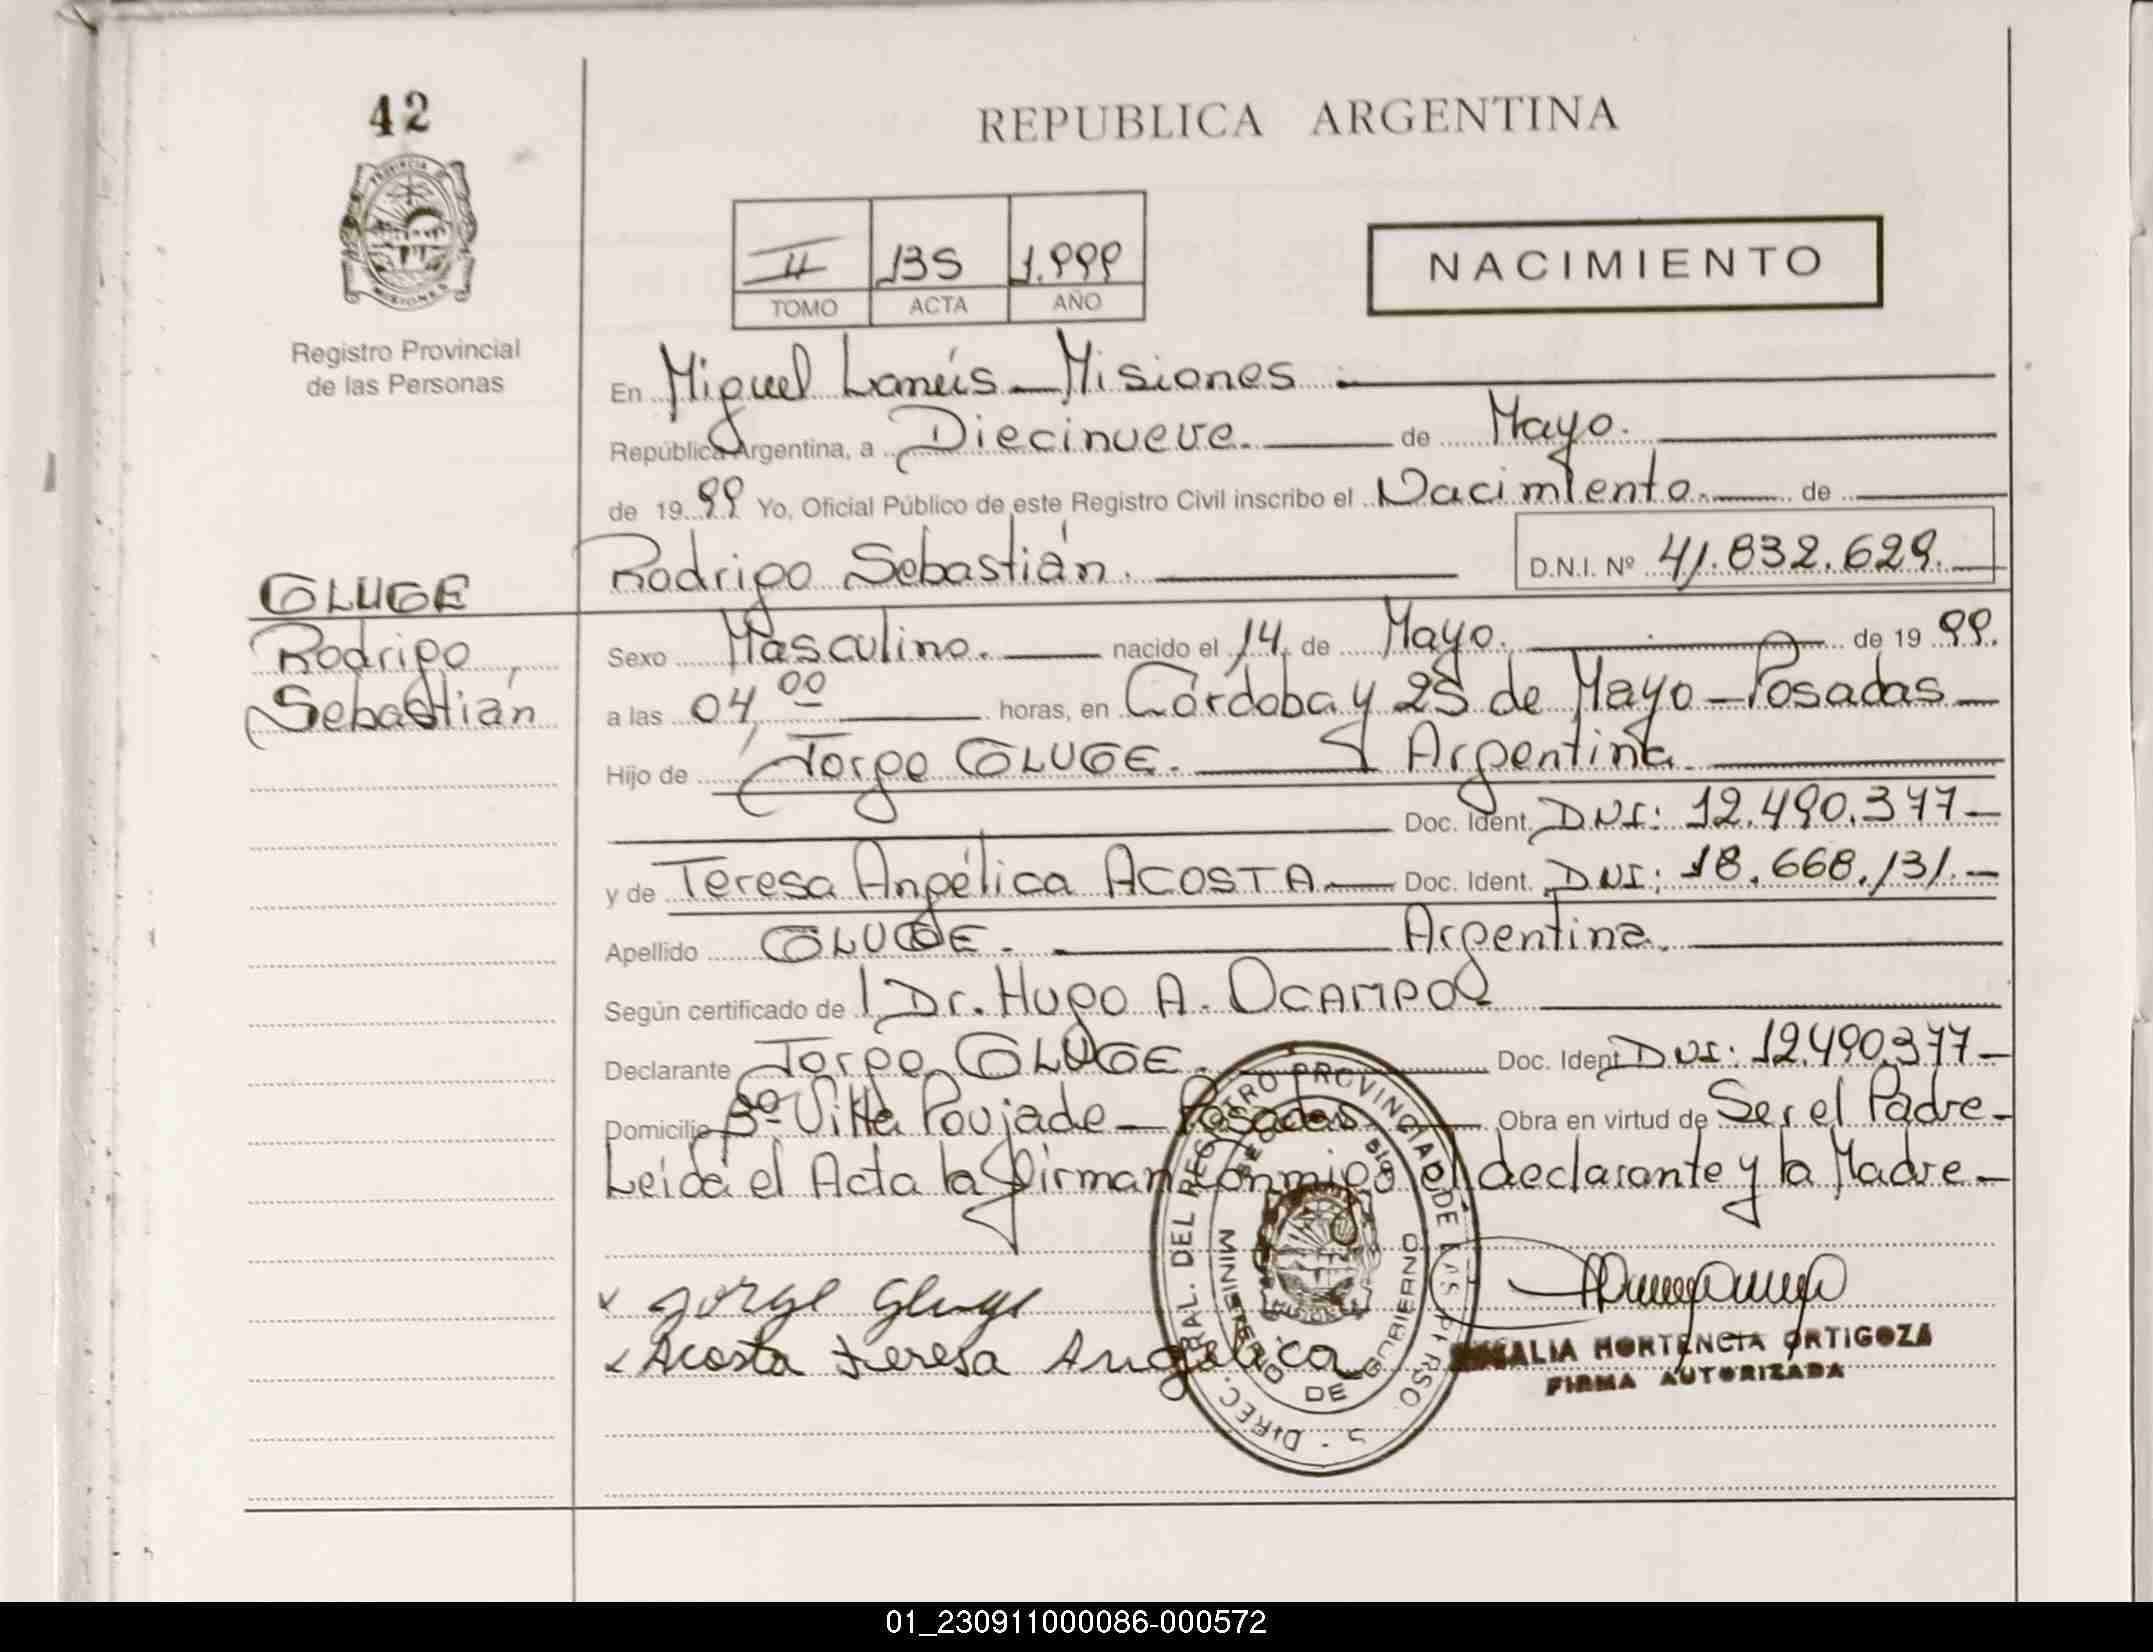 42
REPUBLICA ARGENTINA
PROVINCIA DE MISIONES
II 135 1.999
TOMO ACTA AÑO
NACIMIENTO
Registro Provincial
de las Personas
En Miguel Lanús - Misiones
República Argentina, a Diecinueve. de Mayo.
de 1999 Yo, Oficial Público de este Registro Civil inscribo el Nacimiento. de
Rodrigo Sebastián. D.N.I. Nº 41.832.629.
GLUGE
Rodrigo
Sebastián
Sexo Masculino. nacido el 14 de Mayo. de 1999.
a las 04,00 horas, en Córdoba y 25 de Mayo - Posadas
Hijo de Jorge GLUGE. Argentina.
Doc. Ident. DNI: 12.490.377
y de Teresa Angélica ACOSTA Doc. Ident. DNI: 18.668.131.
Apellido GLUGE. Argentina.
Según certificado de Dr. Hugo A. OCAMPO
Declarante Jorge GLUGE. Doc. Ident DNI: 12.490.377
Domicilio Bº Villa Poujade - Posadas Obra en virtud de Ser el Padre
Leída el Acta la firman conmigo el declarante y la Madre
Jorge Gluge
Acosta Teresa Angelica
DIREC. GRAL. DEL REGISTRO PROVINCIAL DE LAS PERSO
MINISTERIO DE GOBIERNO
HORTENCIA ORTIGOZA
FIRMA AUTORIZADA
01_230911000086-000572